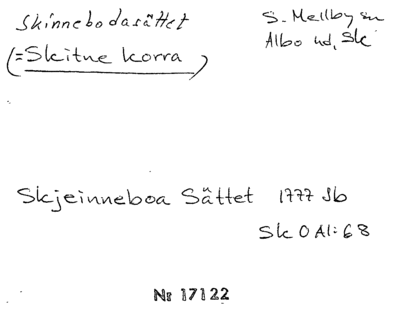 Skinnebodasättet
S. Mellby sn
(=Skitne korra)
Albo hd, Sk
Skjeinneboa Sättet 1777 Jb
Sk O Al: 68
Nr 17122